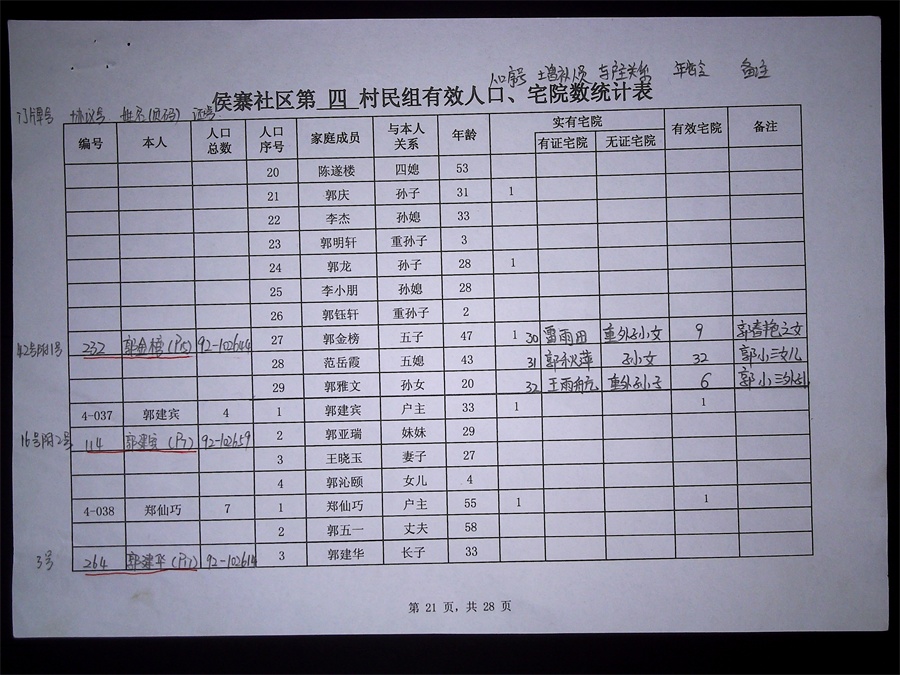 人口序号 与户主关系 年龄 备注
侯寨社区第 四 村民组有效人口、宅院数统计表
门牌号 协议号 姓名(页码) 证号
编号 本人 人口总数 人口序号 家庭成员 与本人关系 年龄 实有宅院 有证宅院 无证宅院 有效宅院 备注
20 陈遂楼 四媳 53
21 郭庆 孙子 31 1
22 李杰 孙媳 33
23 郭明轩 重孙子 3
24 郭龙 孙子 28 1
25 李小朋 孙媳 28
26 郭钰轩 重孙子 2
42号附1号 232 郭金榜(P15) 92-102644 27 郭金榜 五子 47 1 30 雷雨田 重外孙女 9 郭春艳之女
28 范岳霞 五媳 43 31 郭秋萍 孙女 32 郭小三女儿
29 郭雅文 孙女 20 32 王雨航 重外孙子 6 郭小三外孙
4-037 郭建宾 4 1 郭建宾 户主 33 1 1
16号附2号 114 郭建宾(P7) 92-102659 2 郭亚瑞 妹妹 29
3 王晓玉 妻子 27
4 郭沁颐 女儿 4
4-038 郑仙巧 7 1 郑仙巧 户主 55 1 1
2 郭五一 丈夫 58
3号 264 郭建华(P17) 92-102614 3 郭建华 长子 33
第 21 页，共 28 页